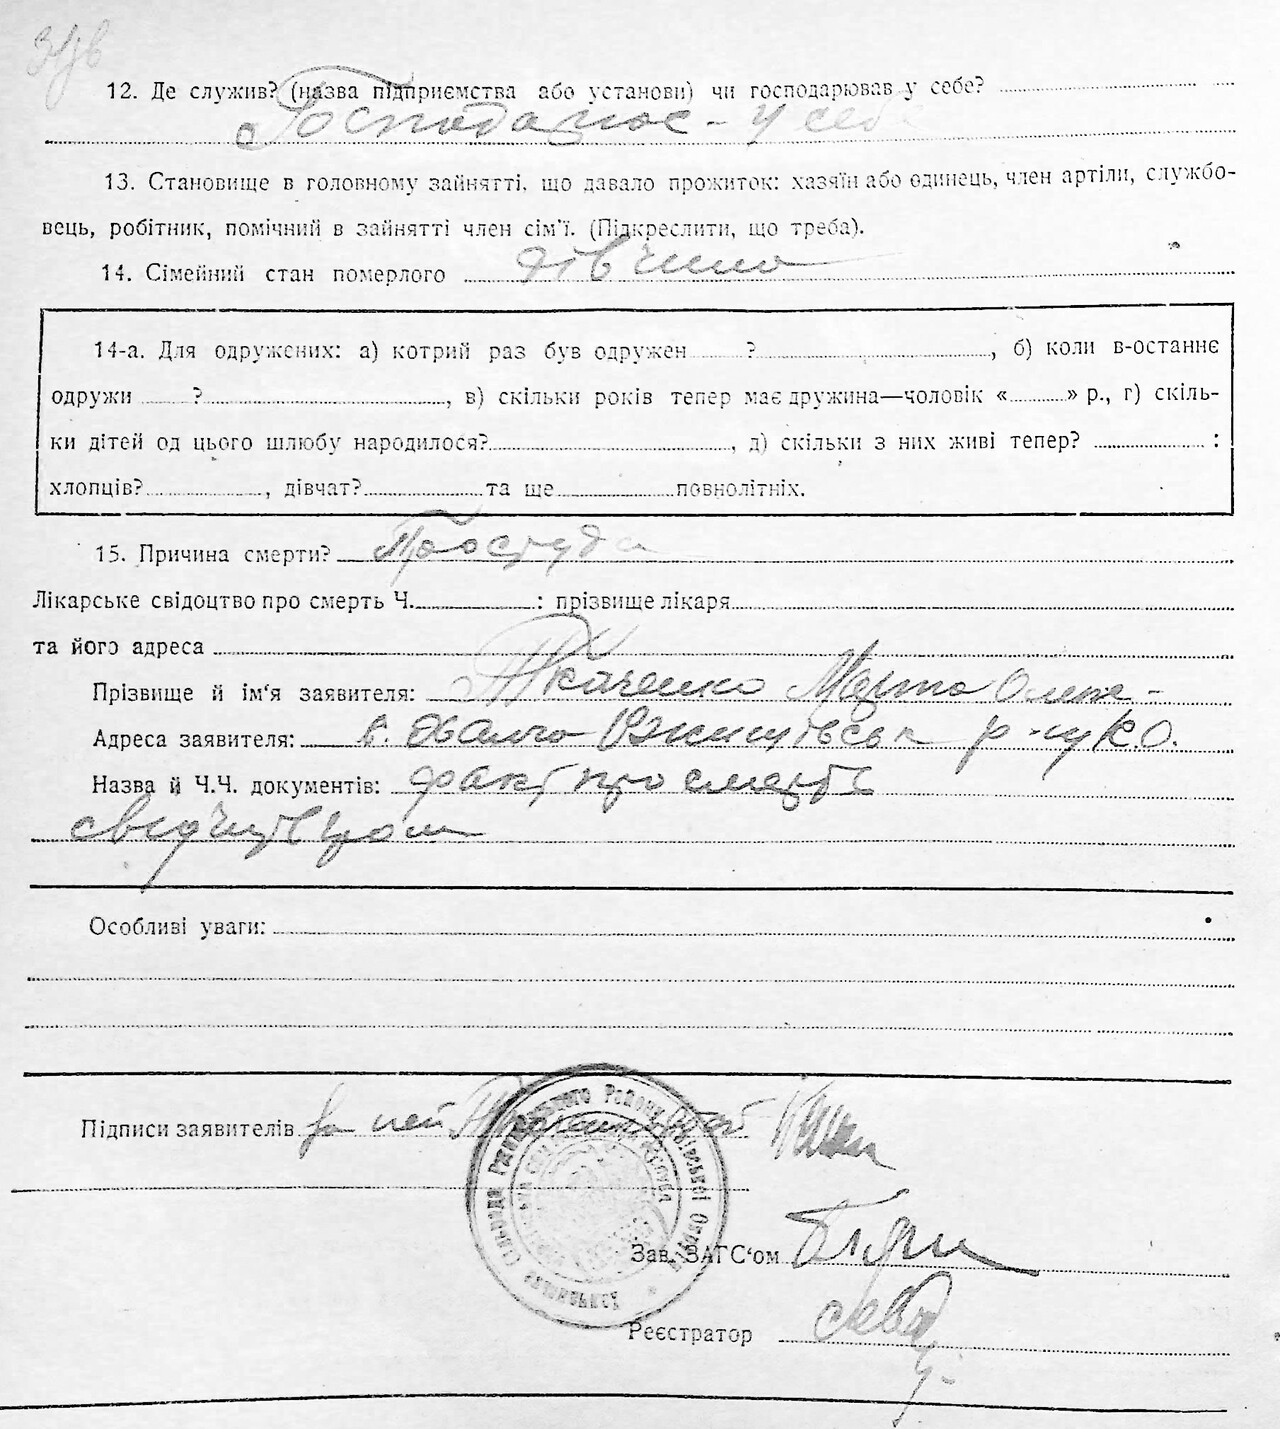 12. Де служив? (назва підприємства або установи) чи господарював у себе?
Господарює - у себе
13. Становище в головному зайнятті, що давало прожиток: хазяїн або одинець, член артіли, службо-
вець, робітник, помічний в зайнятті член сім'ї. (Підкреслити, що треба).
14. Сімейний стан померлого дівчина
14-а. Для одружених: а) котрий раз був одружен ?, б) коли в-останнє
одружи ?, в) скільки років тепер має дружина—чоловік « » р., г) скіль-
ки дітей од цього шлюбу народилося?, д) скільки з них живі тепер? :
хлопців?, дівчат? та ще повнолітніх.
15. Причина смерти? Простуда
Лікарське свідоцтво про смерть Ч. : прізвище лікаря
та його адреса
Прізвище й ім'я заявителя: Ткаченко Марта
Адреса заявителя: р-ну К.О.
Назва й Ч.Ч. документів: факт про смерть
Особливі уваги:
Підписи заявителів за неї
Зав. ЗАГС'ом
Реєстратор